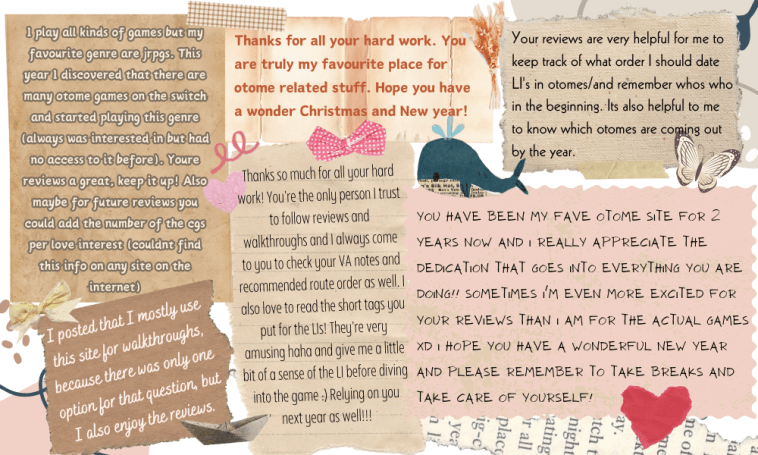 I play all kinds of games but my
favourite genre are jrpgs. This
year I discovered that there are
many otome games on the switch
and started playing this genre
(always was interested in but had
no access to it before). Youre
reviews a great, keep it up! Also
maybe for future reviews you
could add the number of the cgs
per love interest (couldnt find
this info on any site on the
internet)
Thanks for all your hard work. You
are truly my favourite place for
otome related stuff. Hope you have
a wonder Christmas and New year!
Your reviews are very helpful for me to
keep track of what order I should date
LI's in otomes/and remember whos who
in the beginning. Its also helpful to me
to know which otomes are coming out
by the year.
Thanks so much for all your hard
work! You're the only person I trust
to follow reviews and
walkthroughs and I always come
to you to check your VA notes and
recommended route order as well. I
also love to read the short tags you
put for the LIs! They're very
amusing haha and give me a little
bit of a sense of the LI before diving
into the game :) Relying on you
next year as well!!!
YOU HAVE BEEN MY FAVE OTOME SITE FOR 2
YEARS NOW AND I REALLY APPRECIATE THE
DEDICATION THAT GOES INTO EVERYTHING YOU ARE
DOING!! SOMETIMES I'M EVEN MORE EXCITED FOR
YOUR REVIEWS THAN I AM FOR THE ACTUAL GAMES
XD I HOPE YOU HAVE A WONDERFUL NEW YEAR
AND PLEASE REMEMBER TO TAKE BREAKS AND
TAKE CARE OF YOURSELF!
I posted that I mostly use
this site for walkthroughs,
because there was only one
option for that question, but
I also enjoy the reviews.